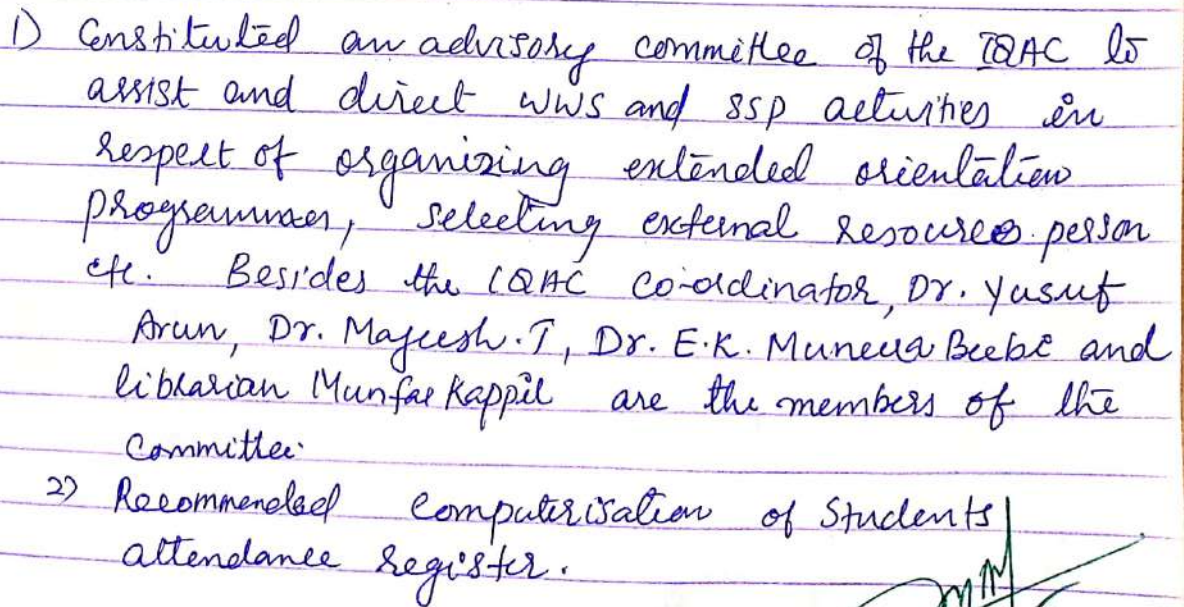 1) Constituted an advisory committee of the IQAC to
assist and direct WWS and SSP activities in
respect of organizing extended orientation
programmes, selecting external resources person
etc. Besides the IQAC Co-ordinator, Dr. Yusuf
Arun, Dr. Majeesh.T, Dr. E.K. Muneera Beebi and
librarian Munfar Kappil are the members of the
Committee.
2) Recommended computerisation of Students
attendance register.